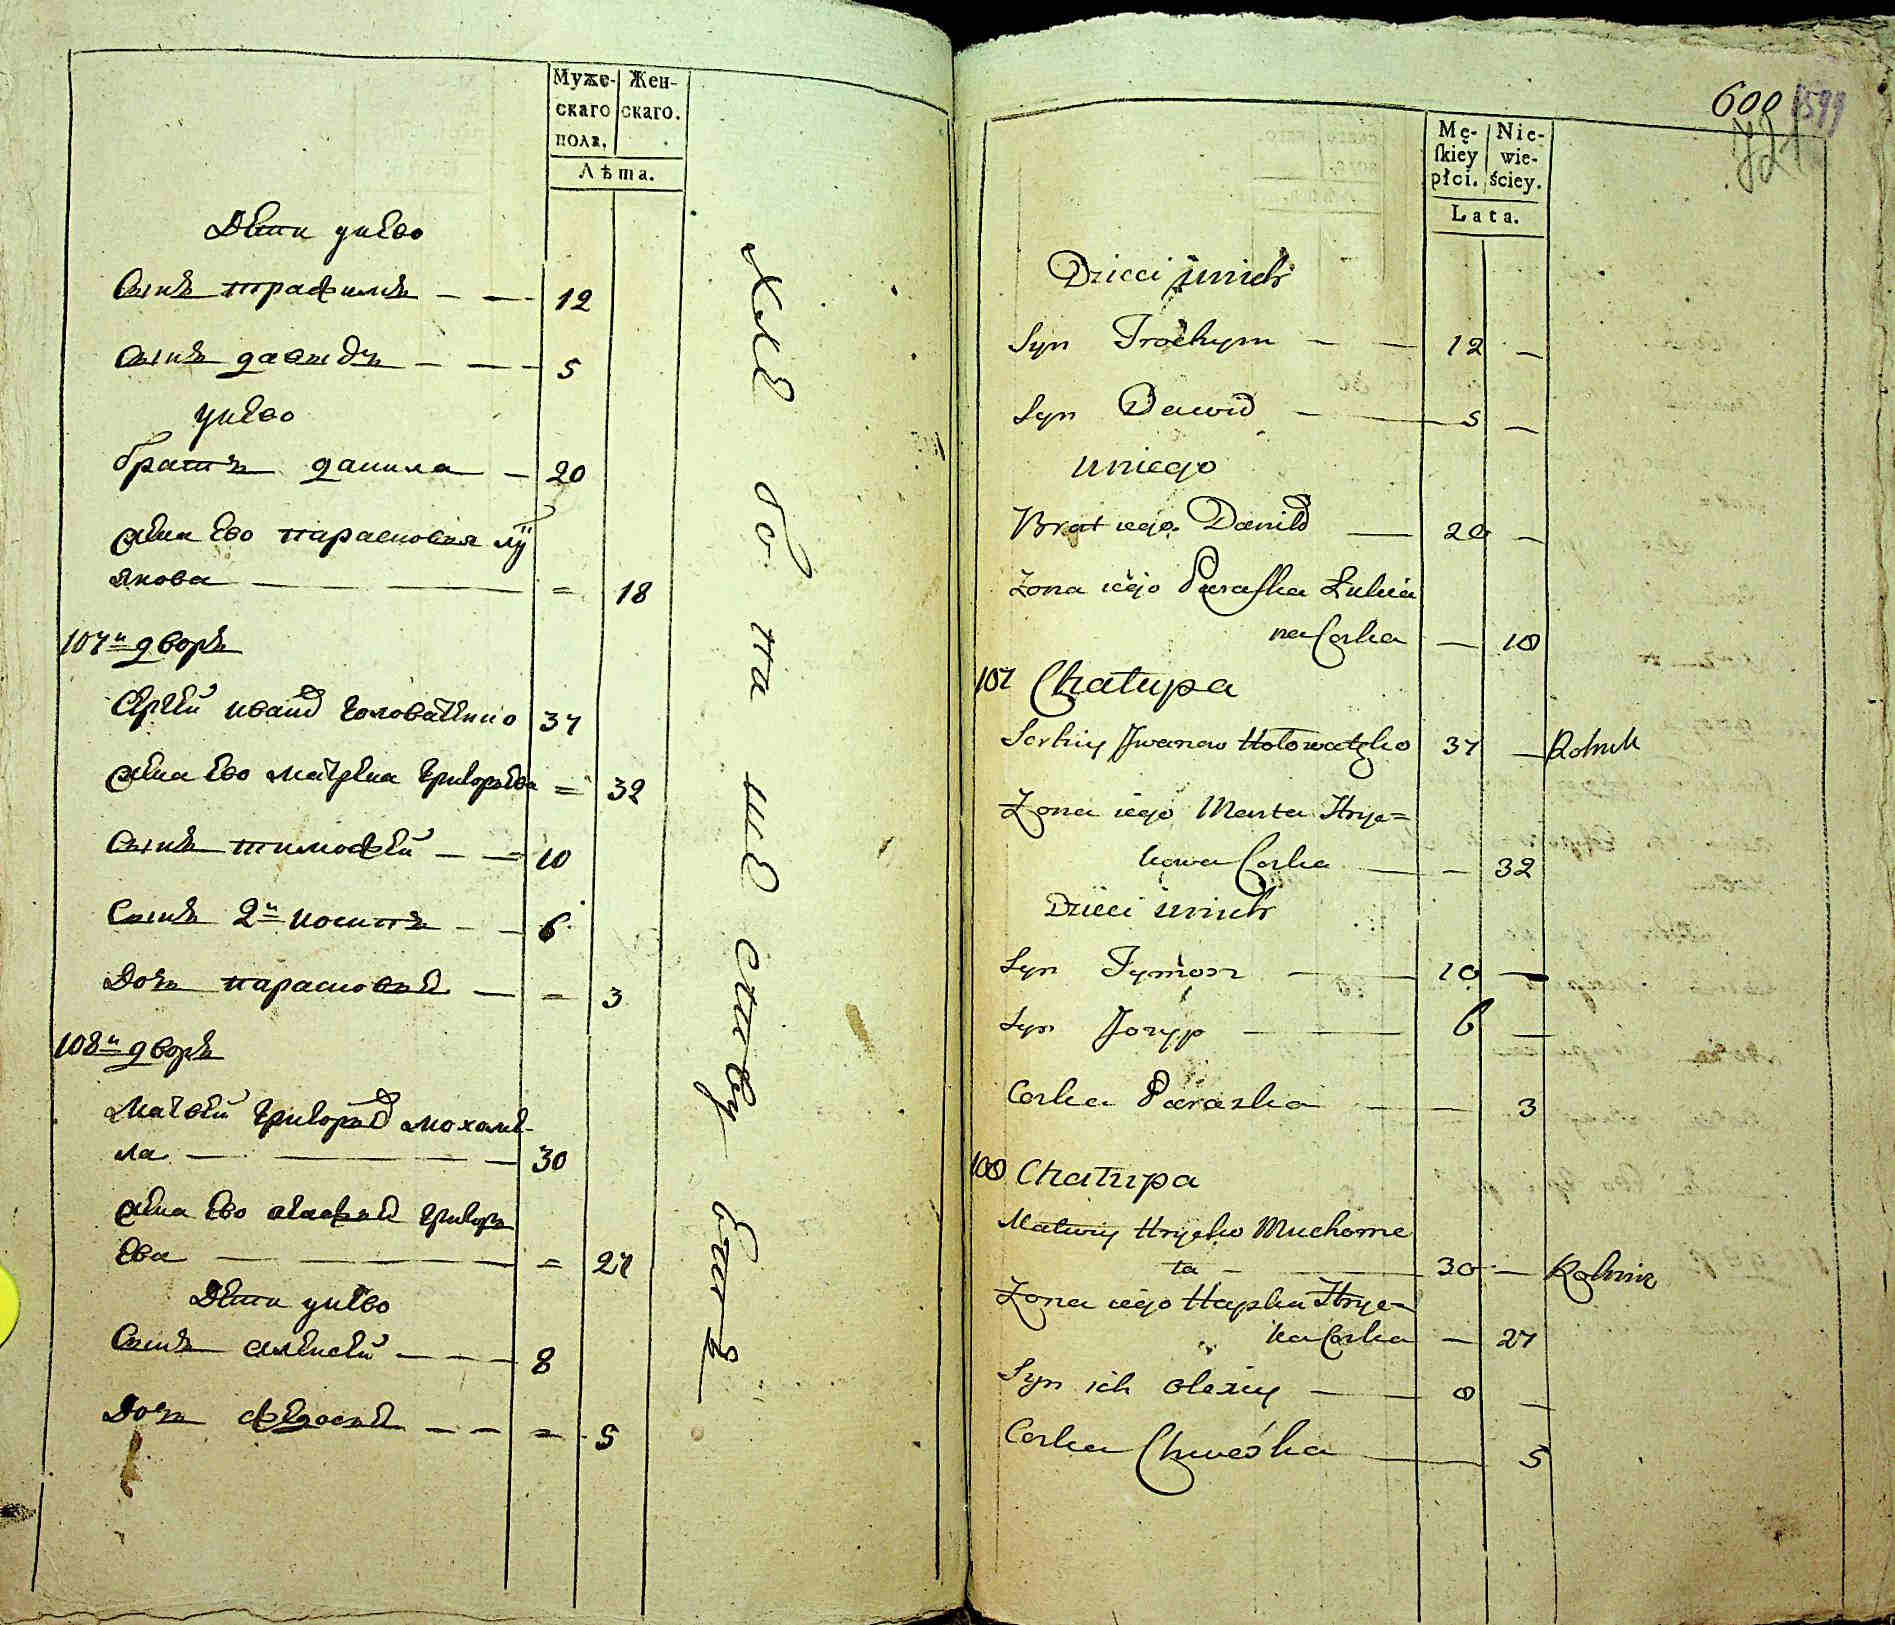 Муже-
скаго
пола.
Жен-
скаго.
Лѣта.
Дети унево
Сынъ трафимъ — — 12
Сынъ давидъ — — 5
унево
братъ данила — 20
жена Ево парасковия лу
кянова — — = 18
107й дворъ
Сергей иванов головатенко 37
жена Ево матрена григорева = 32
Сынъ тимофей — — 10
Сынъ 2й иосипъ — — 6
Дочь парасковея — = 3
108й дворъ
Матвей григорьев мохаме-
ла — — — 30
жена Ево агафья григорь
ева — — = 27
Дети унево
Сынъ алексей — — — 8
Дочь федосья — — = 5
хлебопашествуетъ
600 599
721
Mę-
skiey
płci.
Nie-
wie-
ściey.
Lata.
Dzieci unich
Syn Trochym — — 12 —
Syn Dawid — — 5 —
uniego
Brat iego Daniło — 20 —
Zona iego Paraska Łukia
na Corka — 18
107 Chałupa
Serhiy Iwanow Hołowatzko 37 — Rolnik
Zona iego Marta Hryc=
kowa Corka — — 32
Dzieci unich
Syn Tymosz — 10 —
Syn Jozyp — 6 —
Corka Paraska — — 3
108 Chałupa
Matwiy Hrycko Muchome
ta — — 30 — Rolnik
Zona iego Hapka Hryc=
ka Corka — 27
Syn ich Olexiy — 8 —
Corka Chweśka — 5